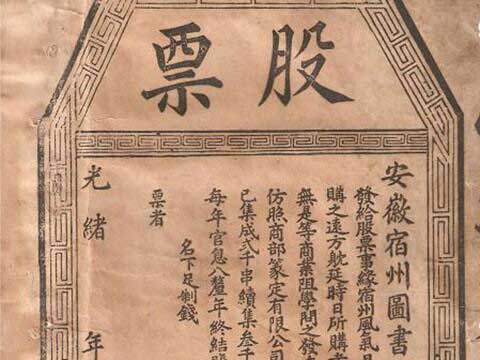 股票
安徽宿州圖書
發給股票事緣宿州風氣
購之遠方躭延時日所購
無是等商業阻學問之發
仿照商部篆定有限公司
已集成弍千串續集叁千
每年官息八釐年終結
名下足制錢
票者
光緒 年